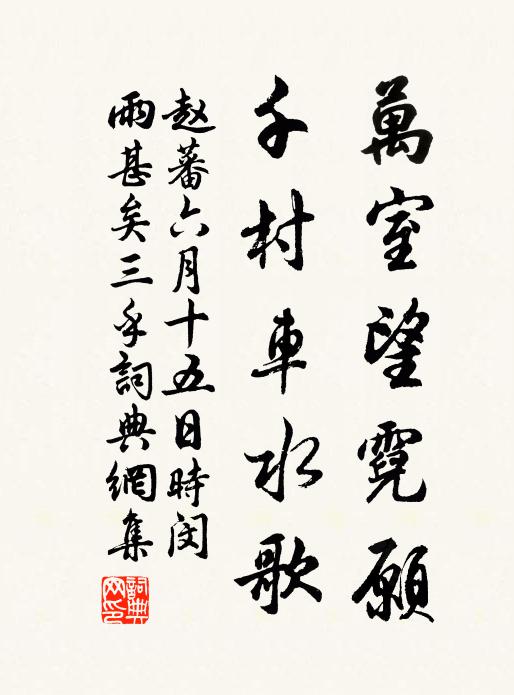 萬室望霓願
千村車水歌
赵蕃六月十五日時闵
雨甚矣三手詞典網集
詞典網印